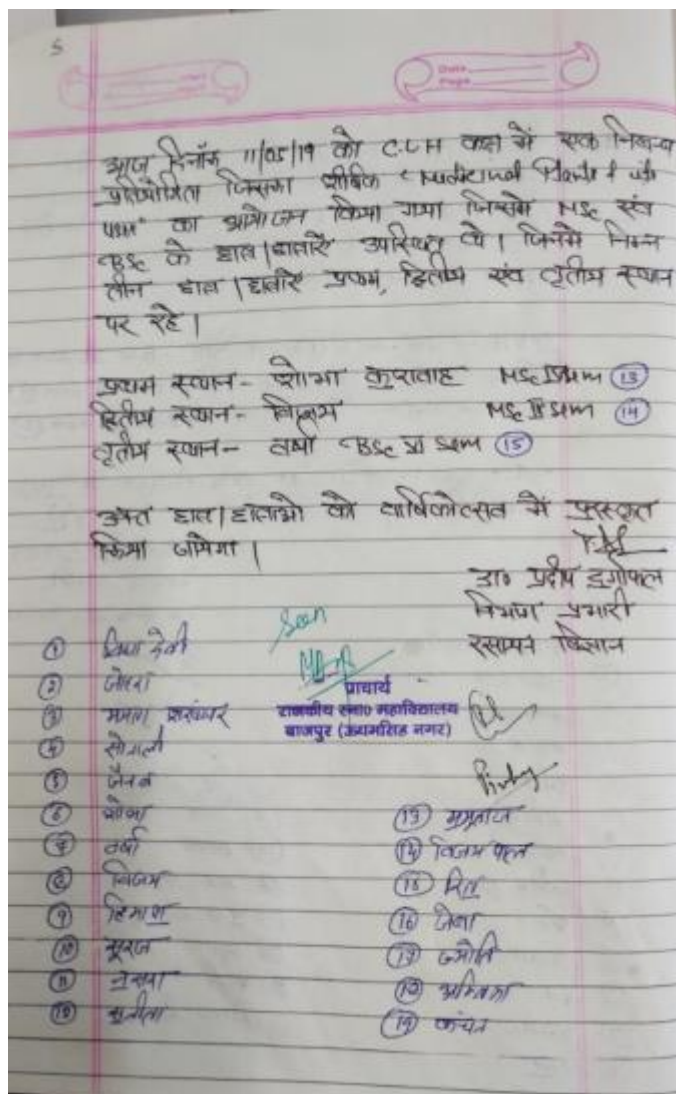 5
Date
Page
आज दिनाँक 11/05/19 को C.L.H कक्ष में एक निबन्ध
प्रतियोगिता जिसका शीर्षक "Medicinal Plants & its
का आयोजन किया गया जिसमे MSc एवं
BSc के छात्र/छात्राऐं उपस्थित थे। जिनमे निम्न
तीन छात्र/छात्राऐं प्रथम, द्वितीय एवं तृतीय स्थान
पर रहे।
प्रथम स्थान- शोभा कुशवाह MSc Sem 13
द्वितीय स्थान- MSc II Sem 14
तृतीय स्थान- वर्षा BSc Sem 15
उक्त छात्र/छात्राओ को वार्षिकोत्सव में पुरस्कृत
किया जायेगा।
डा० प्रदीप दुर्गापाल
विभाग प्रभारी
रसायन विज्ञान
Seen
प्राचार्य
राजकीय स्ना० महाविद्यालय
बाजपुर (ऊधमसिंह नगर)
1 देवी
2
3 ममता
4 सोनाली
5 जैनब
6 शोभा
7 वर्षा
8 विजय
9 हिमांशु
10 सूरज
11
12 सुनीता
13 मुमताज
14 विजय पाल
15
16
17 ज्योति
18 अम्बिका
19 कंचन